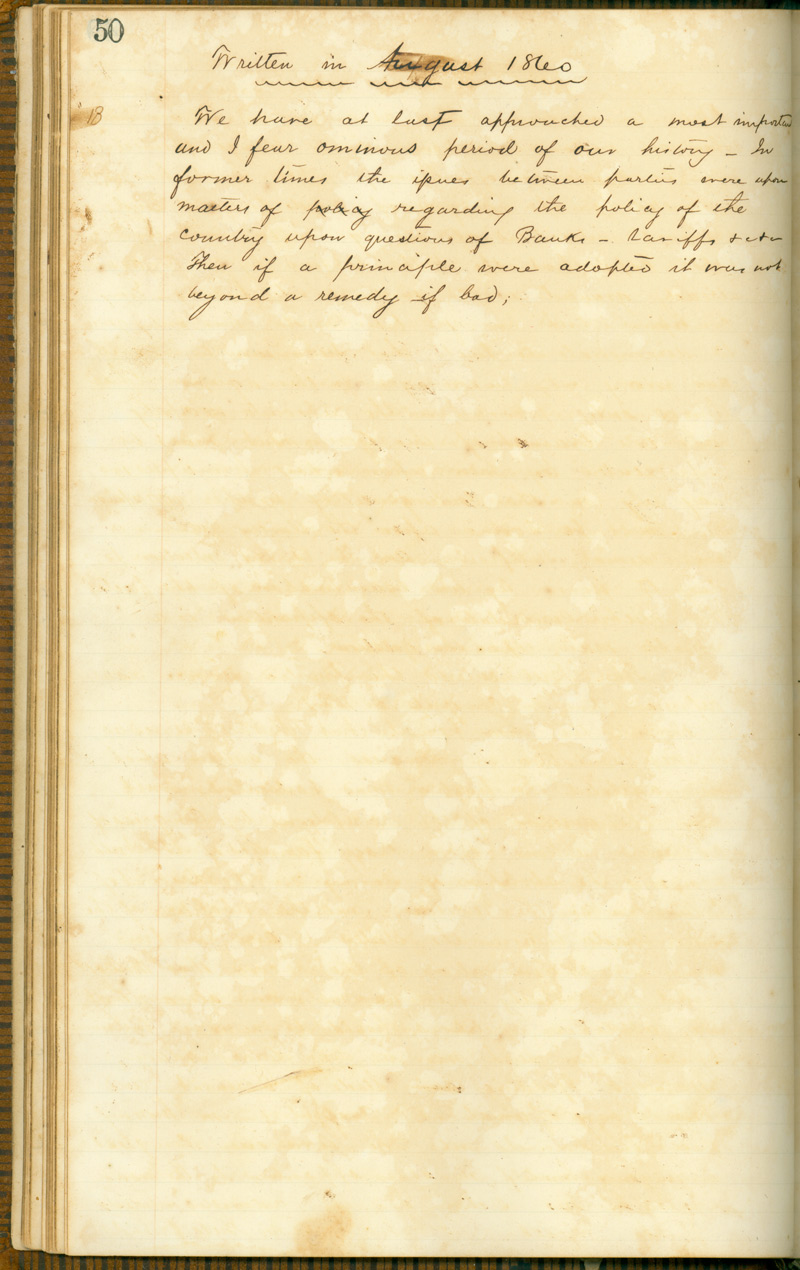 50
Written in August 1860
13
We have at last approached a most important
and I fear ominous period of our history – In
former times the issues between parties were upon
matters of policy regarding the policy of the
country upon questions of Banks – tariffs &c &c
Then if a principle were adopted it was not
beyond a remedy if bad;